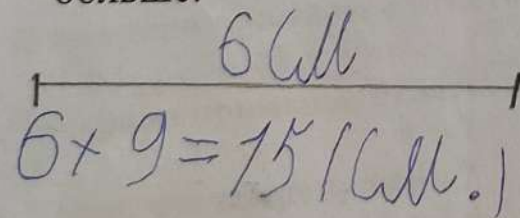 6 см
6 + 9 = 15 (см.)